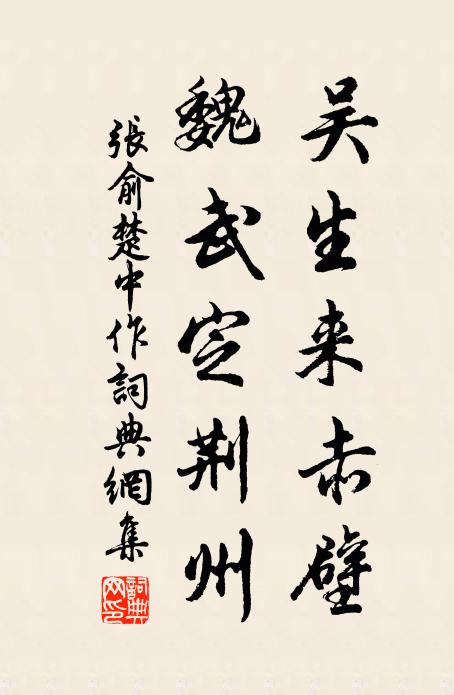 吴生来赤壁
魏武定荆州
張俞楚中作詞典網集
詞典网印